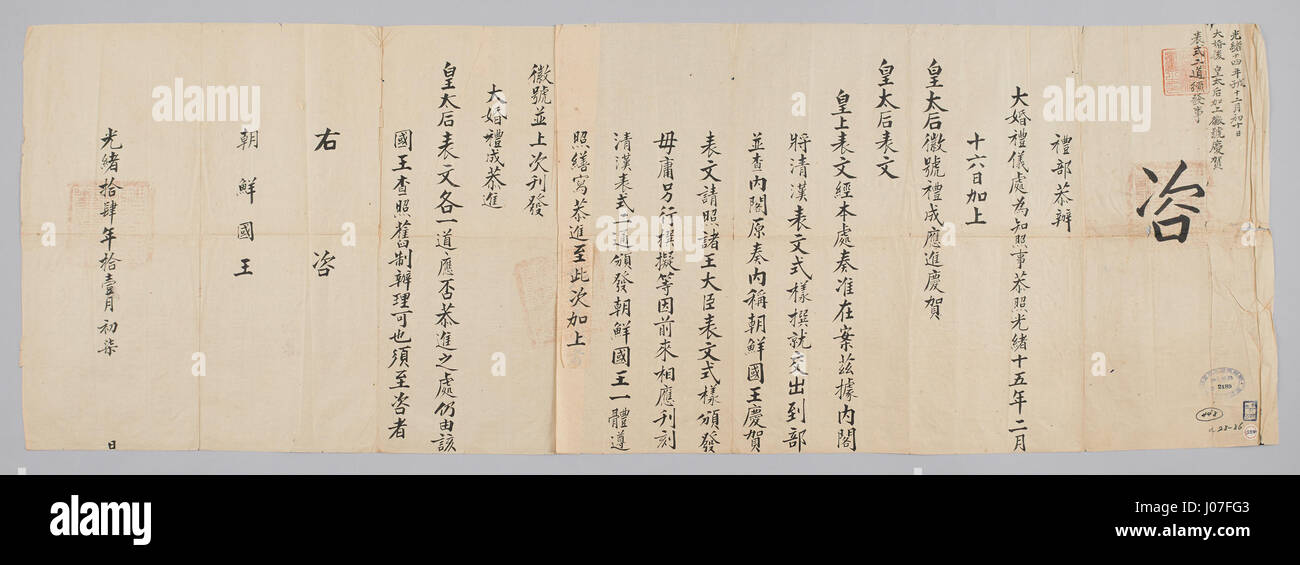 光緒十四年 十二月初十日
大婚後 皇太后加上徽號慶賀
表式二道頒發事
咨
禮部恭辦
大婚禮儀處為知照事恭照光緒十五年二月
十六日加上
皇太后徽號禮成應進慶賀
皇太后表文
皇上表文經本處奏准在案茲據內閣
將清漢表文式樣撰就交出到部
並查內閣原奏內稱朝鮮國王慶賀
表文請照諸王大臣表文式樣頒發
毋庸另行撰擬等因前來相應刊刻
清漢表式二通頒發朝鮮國王一體遵
照繕寫恭進至此次加上
徽號並上次刊發
大婚禮成恭進
皇太后表文各一道應否恭進之處仍由該
國王查照舊制辦理可也須至咨者
右咨
朝鮮國王
光緒拾肆年拾壹月初柒
日
2185
443
23-26
alamy
alamy stock photo
J07FG3
www.alamy.com